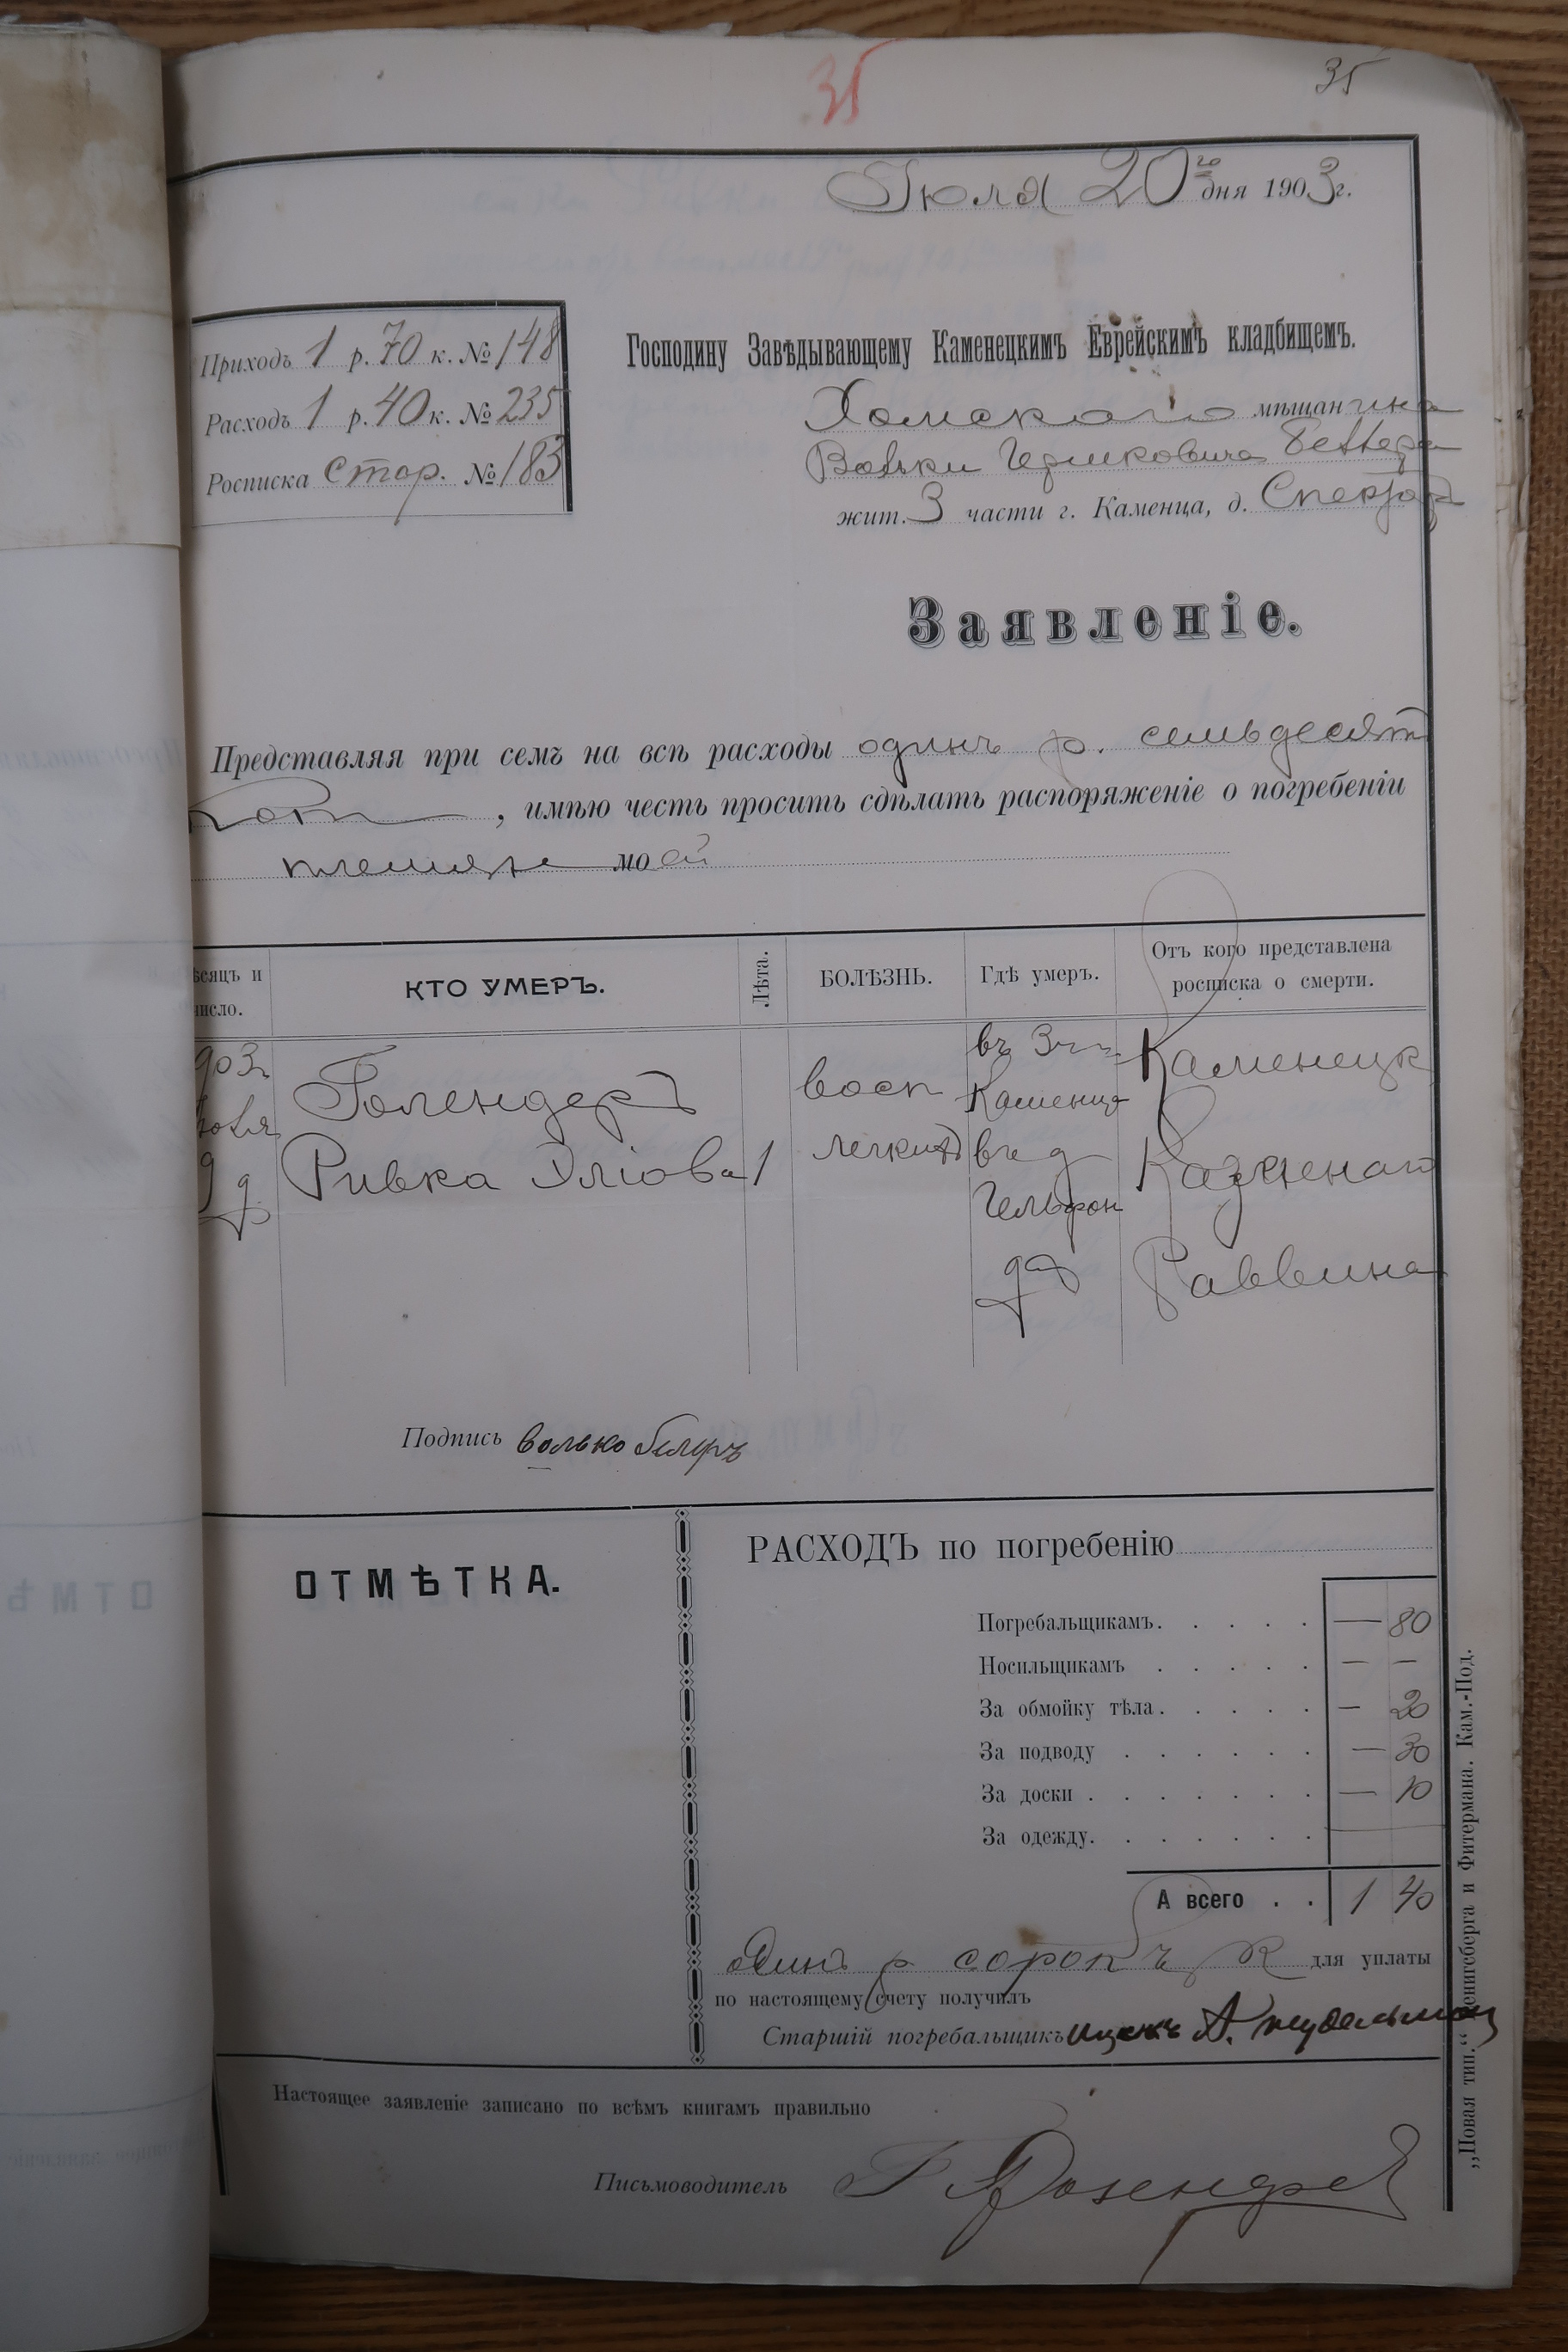 35
35
Іюля 20го дня 1903 г.
Приходъ 1 р. 70 к. № 148
Расходъ 1 р. 40 к. № 235
Росписка Стор. № 183
Господину Завѣдывающему Каменецкимъ Еврейскимъ кладбищемъ.
мѣщанина
Гершковича
жит. 3 части г. Каменца, д.
Заявленіе.
Представляя при семъ на всѣ расходы одинъ р. семьдесятъ
коп, имѣю честь просить сдѣлать распоряженіе о погребеніи
моей
ѣсяцъ и
число.
КТО УМЕРЪ.
Лѣта.
БОЛѢЗНЬ.
Гдѣ умеръ.
Отъ кого представлена
росписка о смерти.
903
Голендеръ
Ривка Эліова
1
восп
легкихъ
въ 3 ч г
Каменца
въ д
Гельфон
да
Каменецк
Казеннаго
Раввина
Подпись волько
ОТМѢТКА.
РАСХОДЪ по погребенію
Погребальщикамъ. — 80
Носильщикамъ — —
За обмойку тѣла. — 20
За подводу — 30
За доски — 10
За одежду.
А всего 1 40
Одинъ р сорокъ к для уплаты
по настоящему счету получилъ
Старшій погребальщикъ Ицекъ А.
Настоящее заявленіе записано по всѣмъ книгамъ правильно
Письмоводитель
„Новая тип." енигсберга и Фитермана. Кам.-Под.